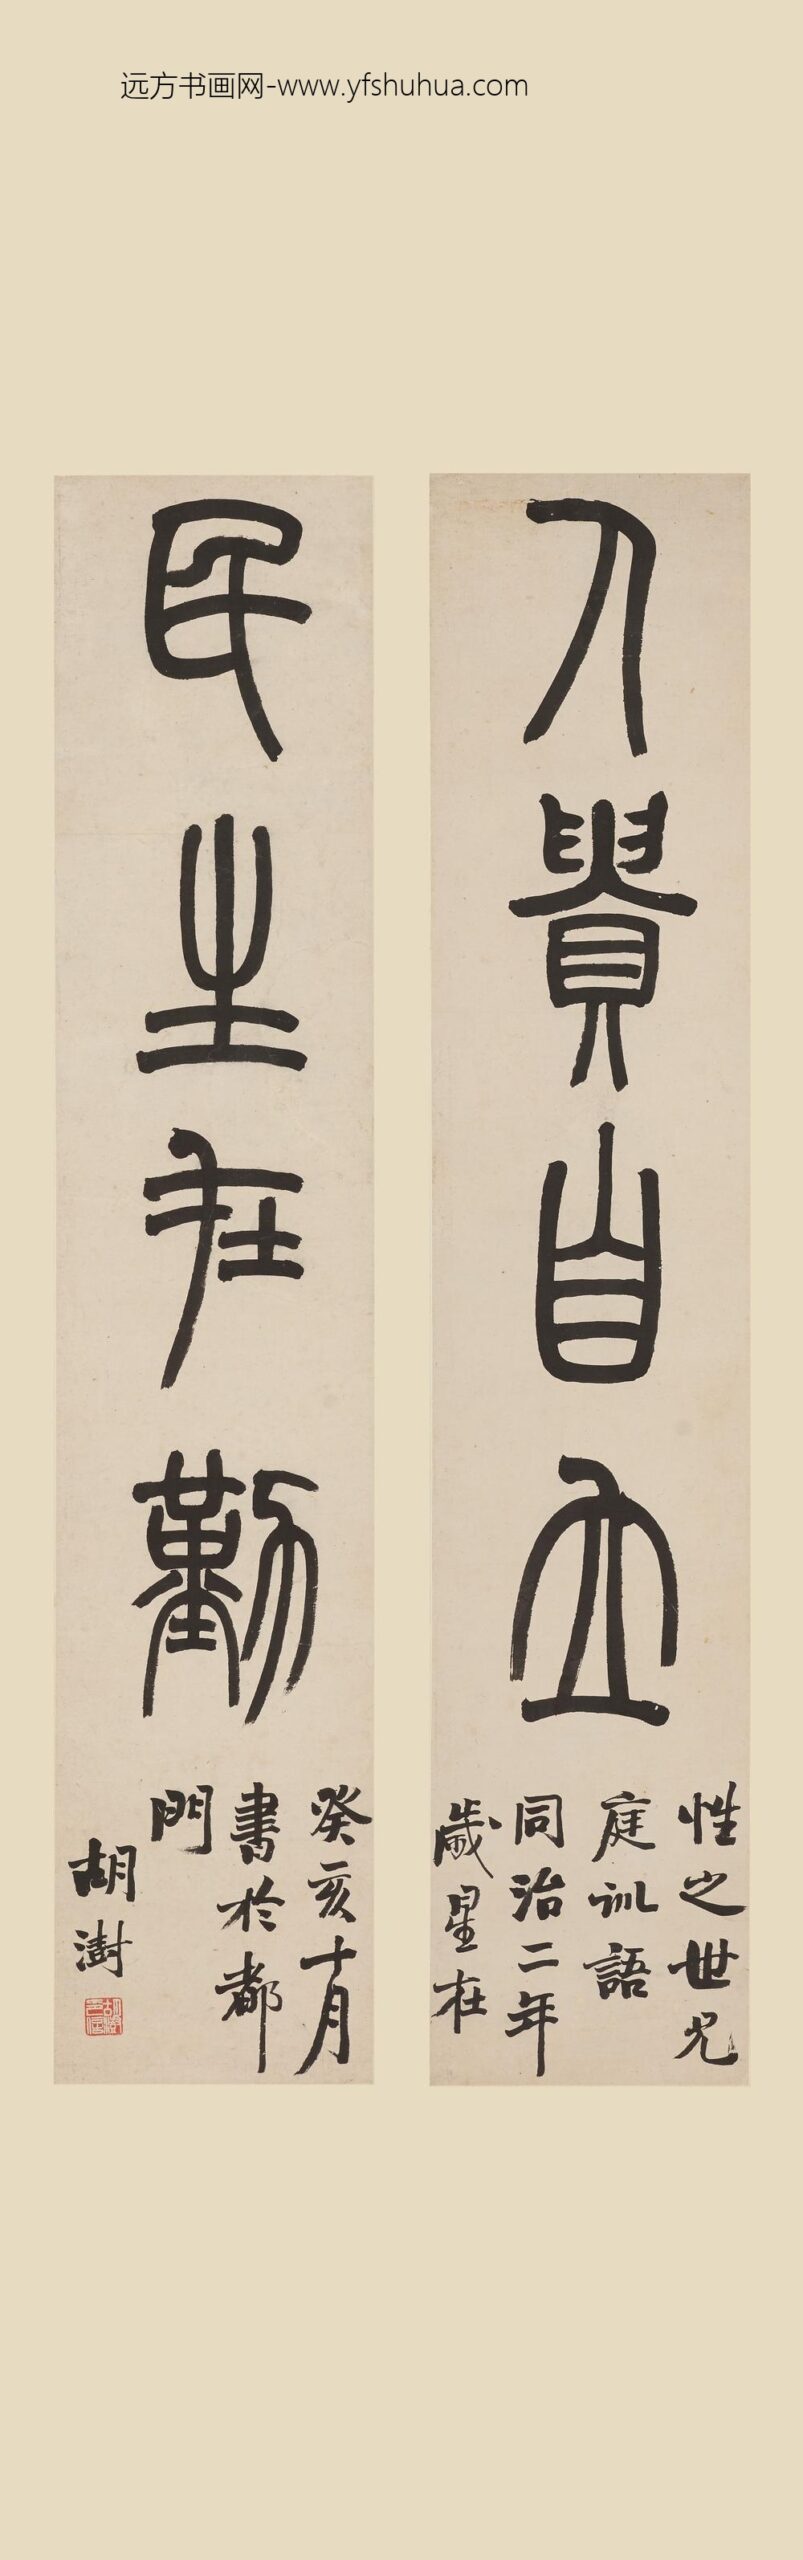 远方书画网-www.yfshuhua.com
人貴自立
性之世兄
庭訓語
同治二年
歲星在
民生在勤
癸亥十月
書於都
門
胡澍